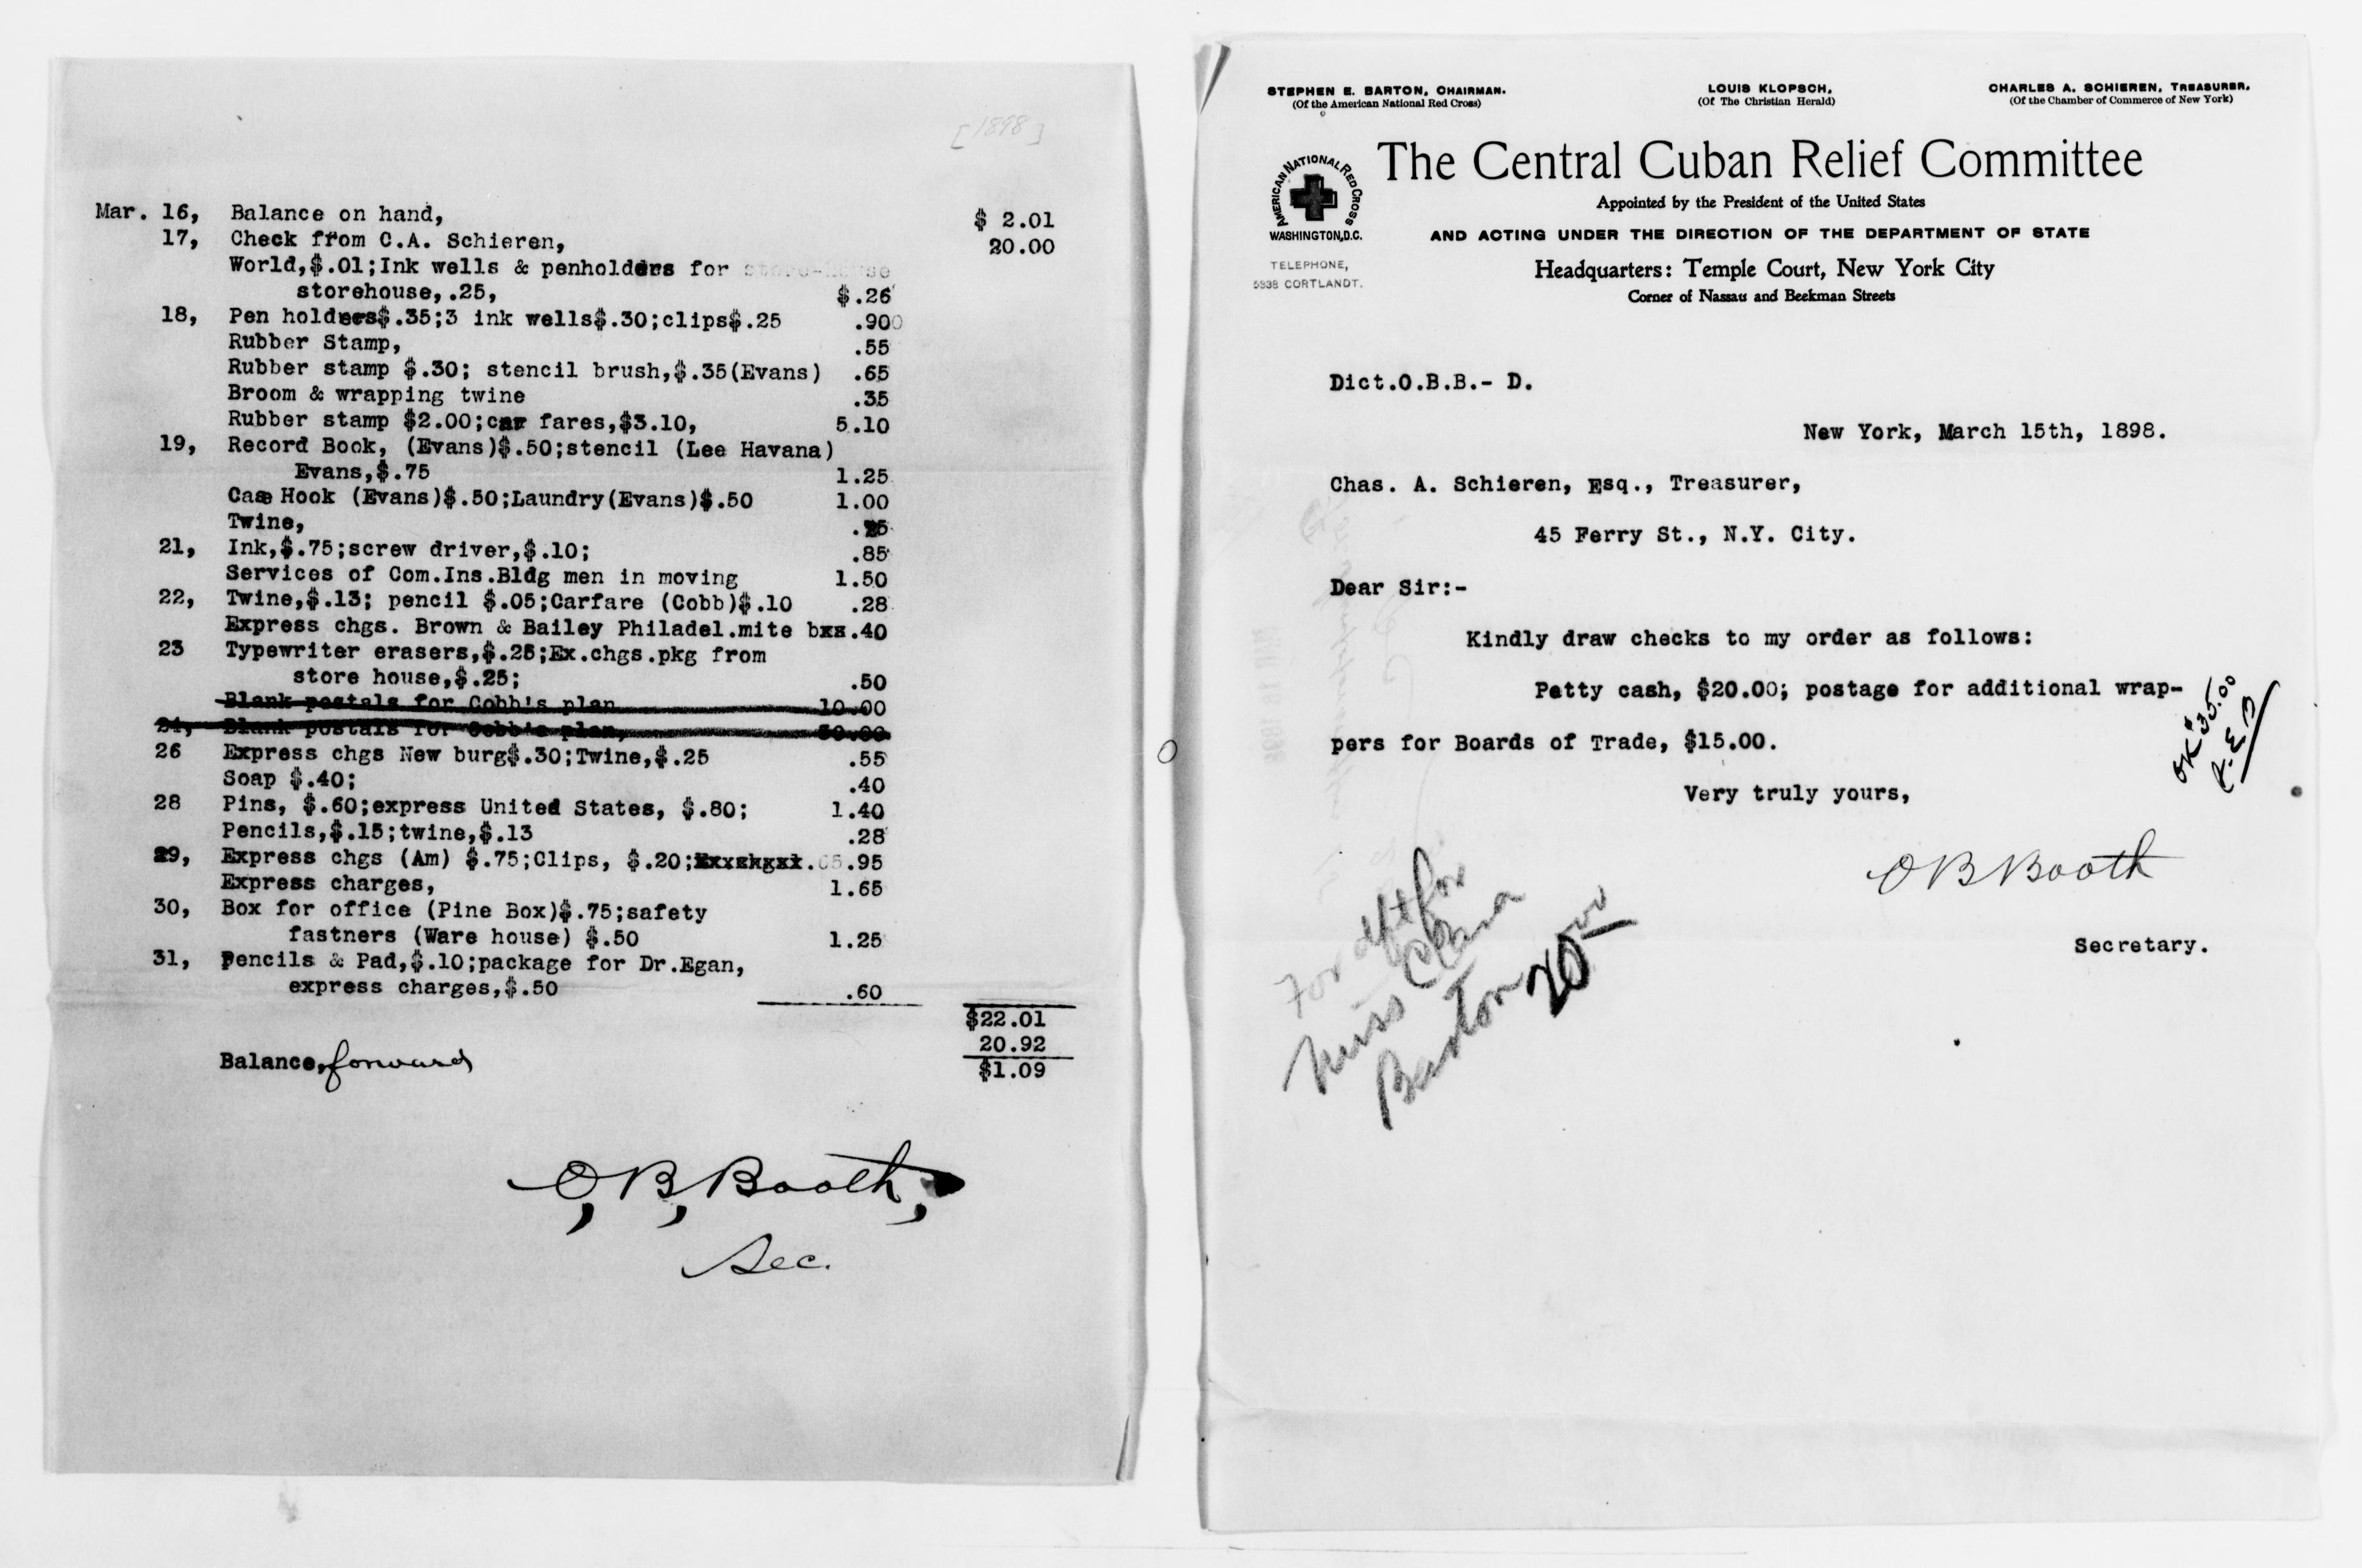 [1898]
Mar. 16, Balance on hand, $ 2.01
17, Check from C.A. Schieren, 20.00
World,$.01;Ink wells & penholders for store-house
storehouse,.25, $.26
18, Pen holders$.35;3 ink wells$.30;clips$.25 .900
Rubber Stamp, .55
Rubber stamp $.30; stencil brush,$.35(Evans) .65
Broom & wrapping twine .35
Rubber stamp $2.00;car fares,$3.10, 5.10
19, Record Book, (Evans)$.50;stencil (Lee Havana)
Evans,$.75 1.25
Case Hook (Evans)$.50;Laundry(Evans)$.50 1.00
Twine,
21, Ink,$.75;screw driver,$.10; .85
Services of Com.Ins.Bldg men in moving 1.50
22, Twine,$.13; pencil $.05;Carfare (Cobb)$.10 .28
Express chgs. Brown & Bailey Philadel.mite bxs.40
23 Typewriter erasers,$.25;Ex.chgs.pkg from
store house,$.25; .50
Blank postals for Cobb's plan 10.00
24, Blank postals for Cobb's plan, 30.00
26 Express chgs New burg$.30;Twine,$.25 .55
Soap $.40; .40
28 Pins, $.60;express United States, $.80; 1.40
Pencils,$.15;twine,$.13 .28
29, Express chgs (Am) $.75;Clips, $.20; .95
Express charges, 1.65
30, Box for office (Pine Box)$.75;safety
fastners (Ware house) $.50 1.25
31, Pencils & Pad,$.10;package for Dr.Egan,
express charges,$.50 .60
$22.01
20.92
Balance, forward $1.09
O, B, Booth,
Sec.
STEPHEN E. BARTON, CHAIRMAN. LOUIS KLOPSCH, CHARLES A. SCHIEREN, TREASURER.
(Of the American National Red Cross) (Of The Christian Herald) (Of the Chamber of Commerce of New York)
AMERICAN NATIONAL RED CROSS
WASHINGTON, D.C.
The Central Cuban Relief Committee
Appointed by the President of the United States
AND ACTING UNDER THE DIRECTION OF THE DEPARTMENT OF STATE
TELEPHONE,
5938 CORTLANDT.
Headquarters: Temple Court, New York City
Corner of Nassau and Beekman Streets
Dict.O.B.B.- D.
New York, March 15th, 1898.
Chas. A. Schieren, Esq., Treasurer,
45 Ferry St., N.Y. City.
Dear Sir:-
Kindly draw checks to my order as follows:
Petty cash, $20.00; postage for additional wrap-
pers for Boards of Trade, $15.00.
OK $35.00
Very truly yours,
O B Booth
Secretary.
For dft for
Miss Clara
Barton 20 00